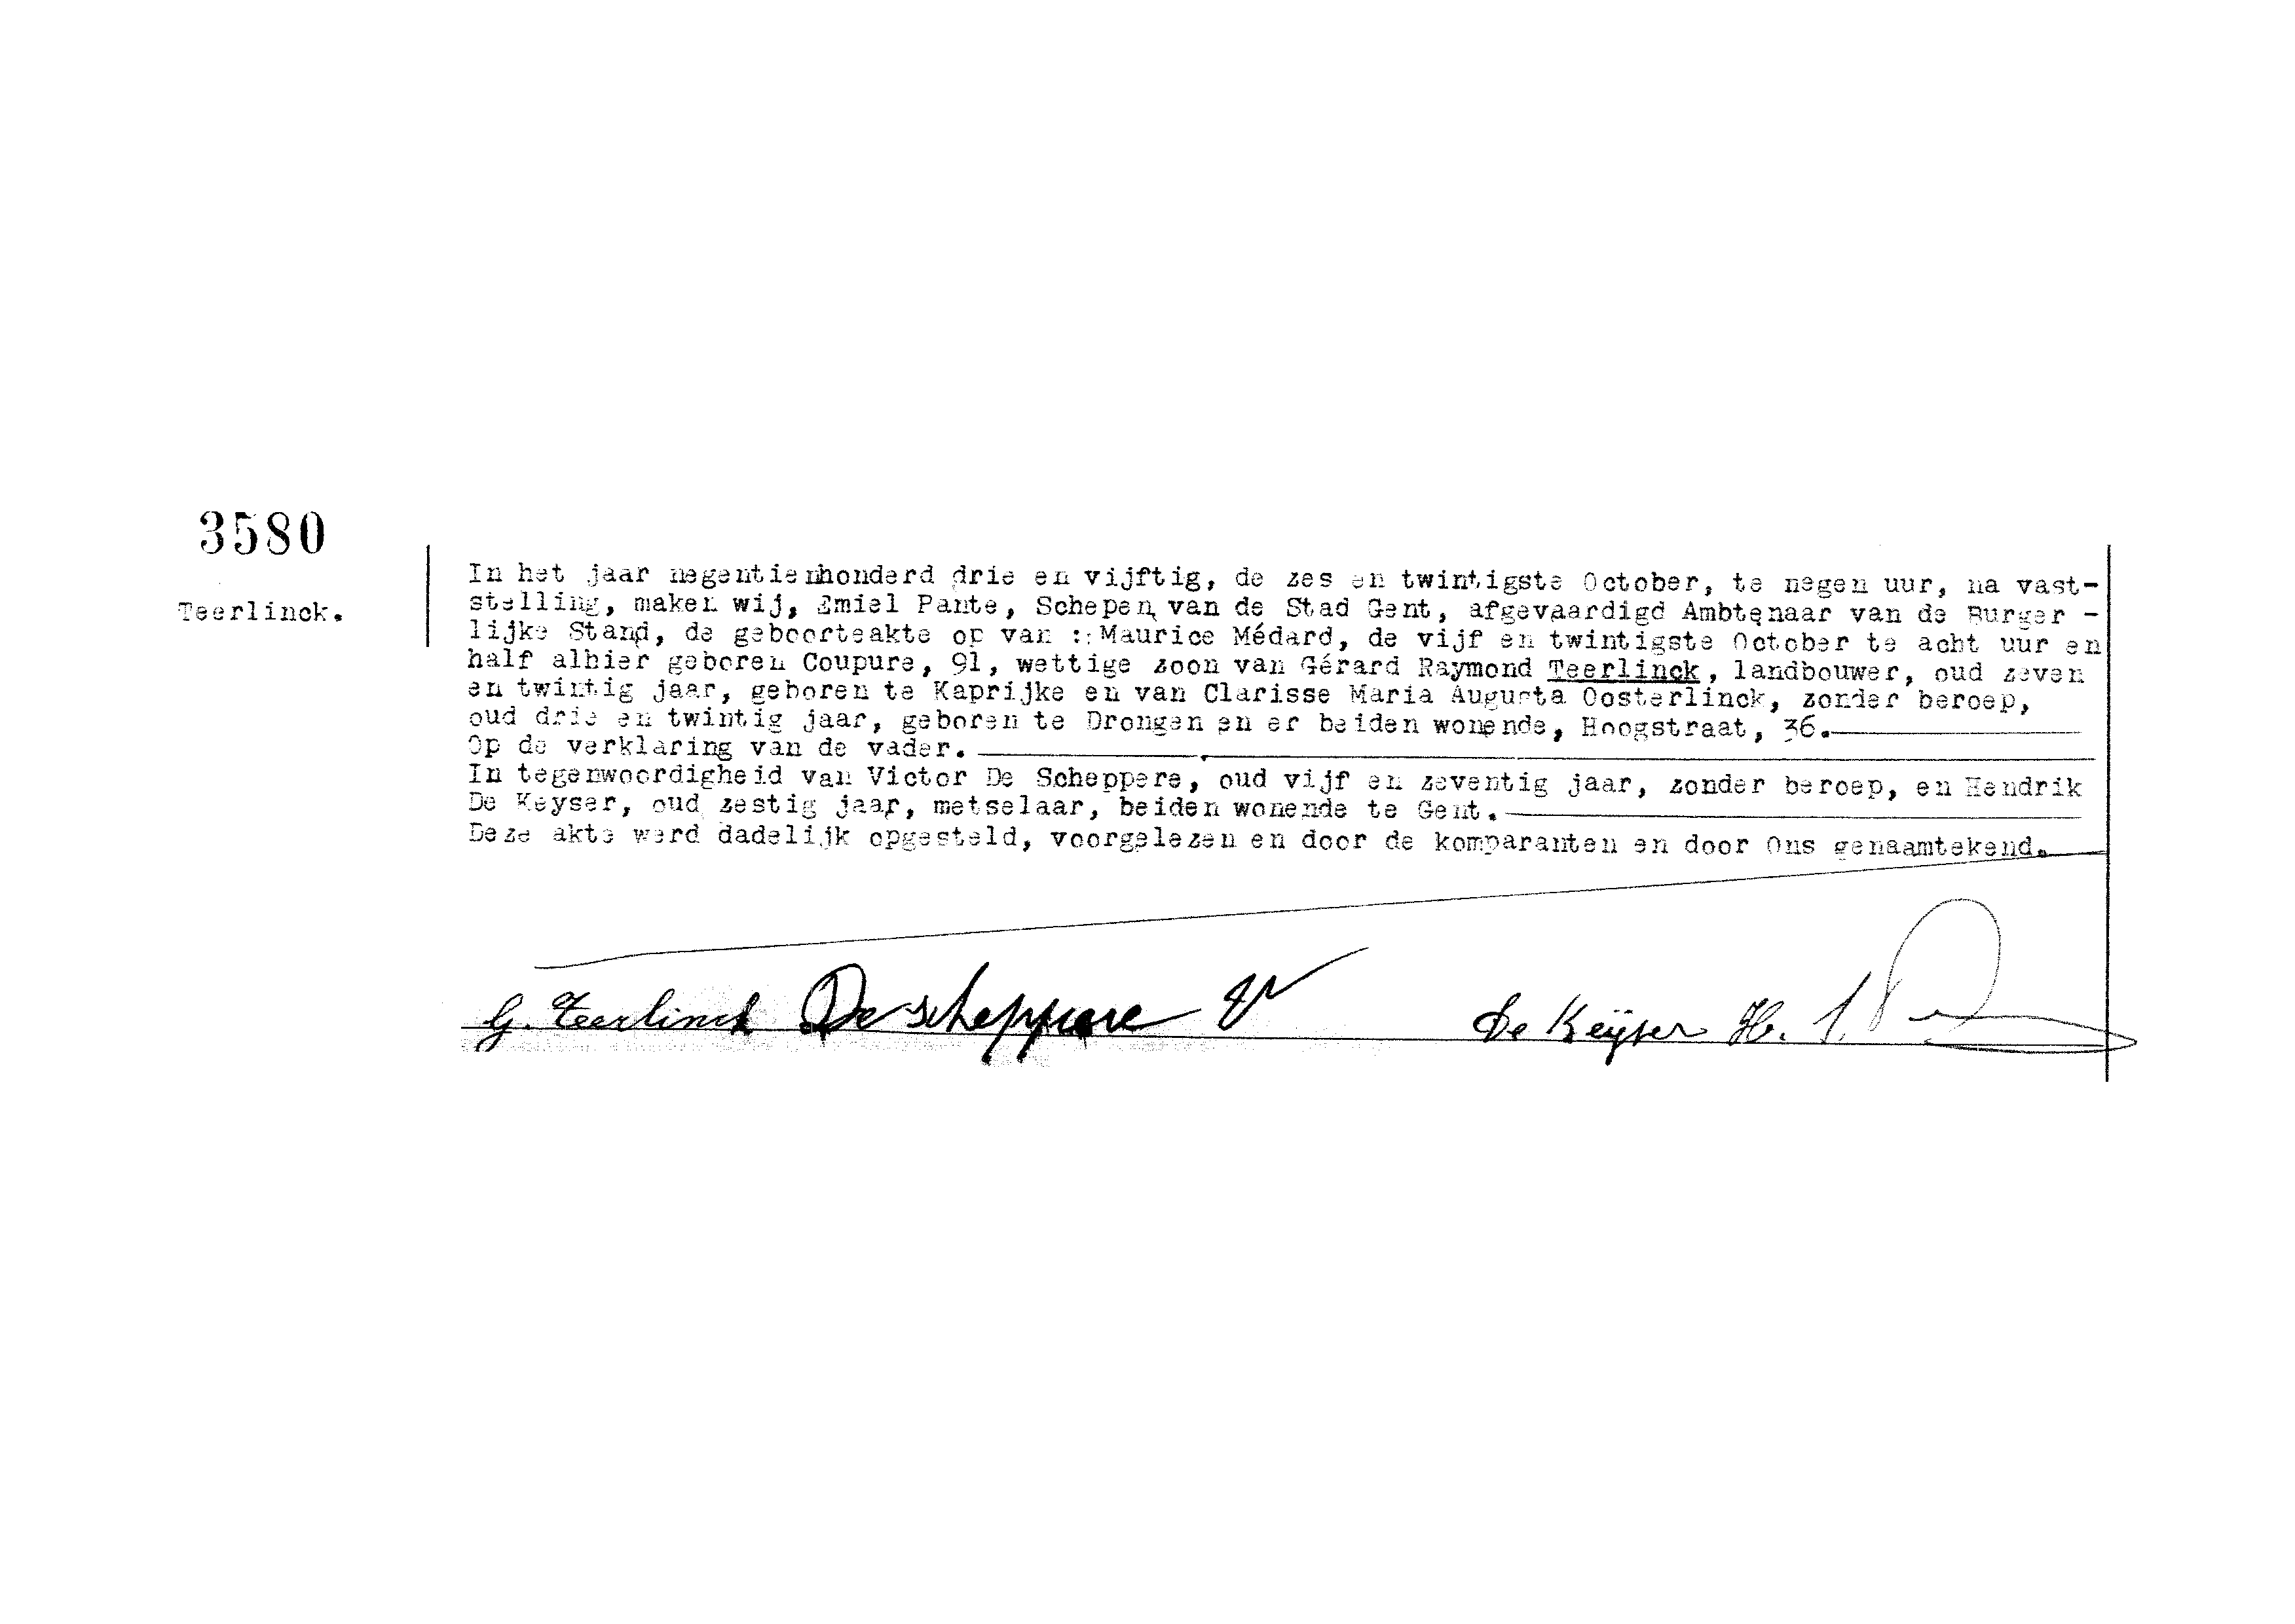 3580
Teerlinck.
In het jaar negentienhonderd drie en vijftig, de zes en twintigste October, te negen uur, na vast-
stelling, maken wij, Emiel Pante, Schepen van de Stad Gent, afgevaardigd Ambtenaar van de Burger -
lijke Stand, de geboorteakte op van : Maurice Médard, de vijf en twintigste October te acht uur en
half alhier geboren Coupure, 91, wettige zoon van Gérard Raymond Teerlinck, landbouwer, oud zeven
en twintig jaar, geboren te Kaprijke en van Clarisse Maria Augusta Oosterlinck, zonder beroep,
oud drie en twintig jaar, geboren te Drongen en er beiden wonende, Hoogstraat, 36.
Op de verklaring van de vader.
In tegenwoordigheid van Victor De Scheppere, oud vijf en zeventig jaar, zonder beroep, en Hendrik
De Keyser, oud zestig jaar, metselaar, beiden wonende te Gent.
Deze akte werd dadelijk opgesteld, voorgelezen en door de komparanten en door Ons genaamtekend.
G. Teerlinck De Scheppere V De Keyser H.